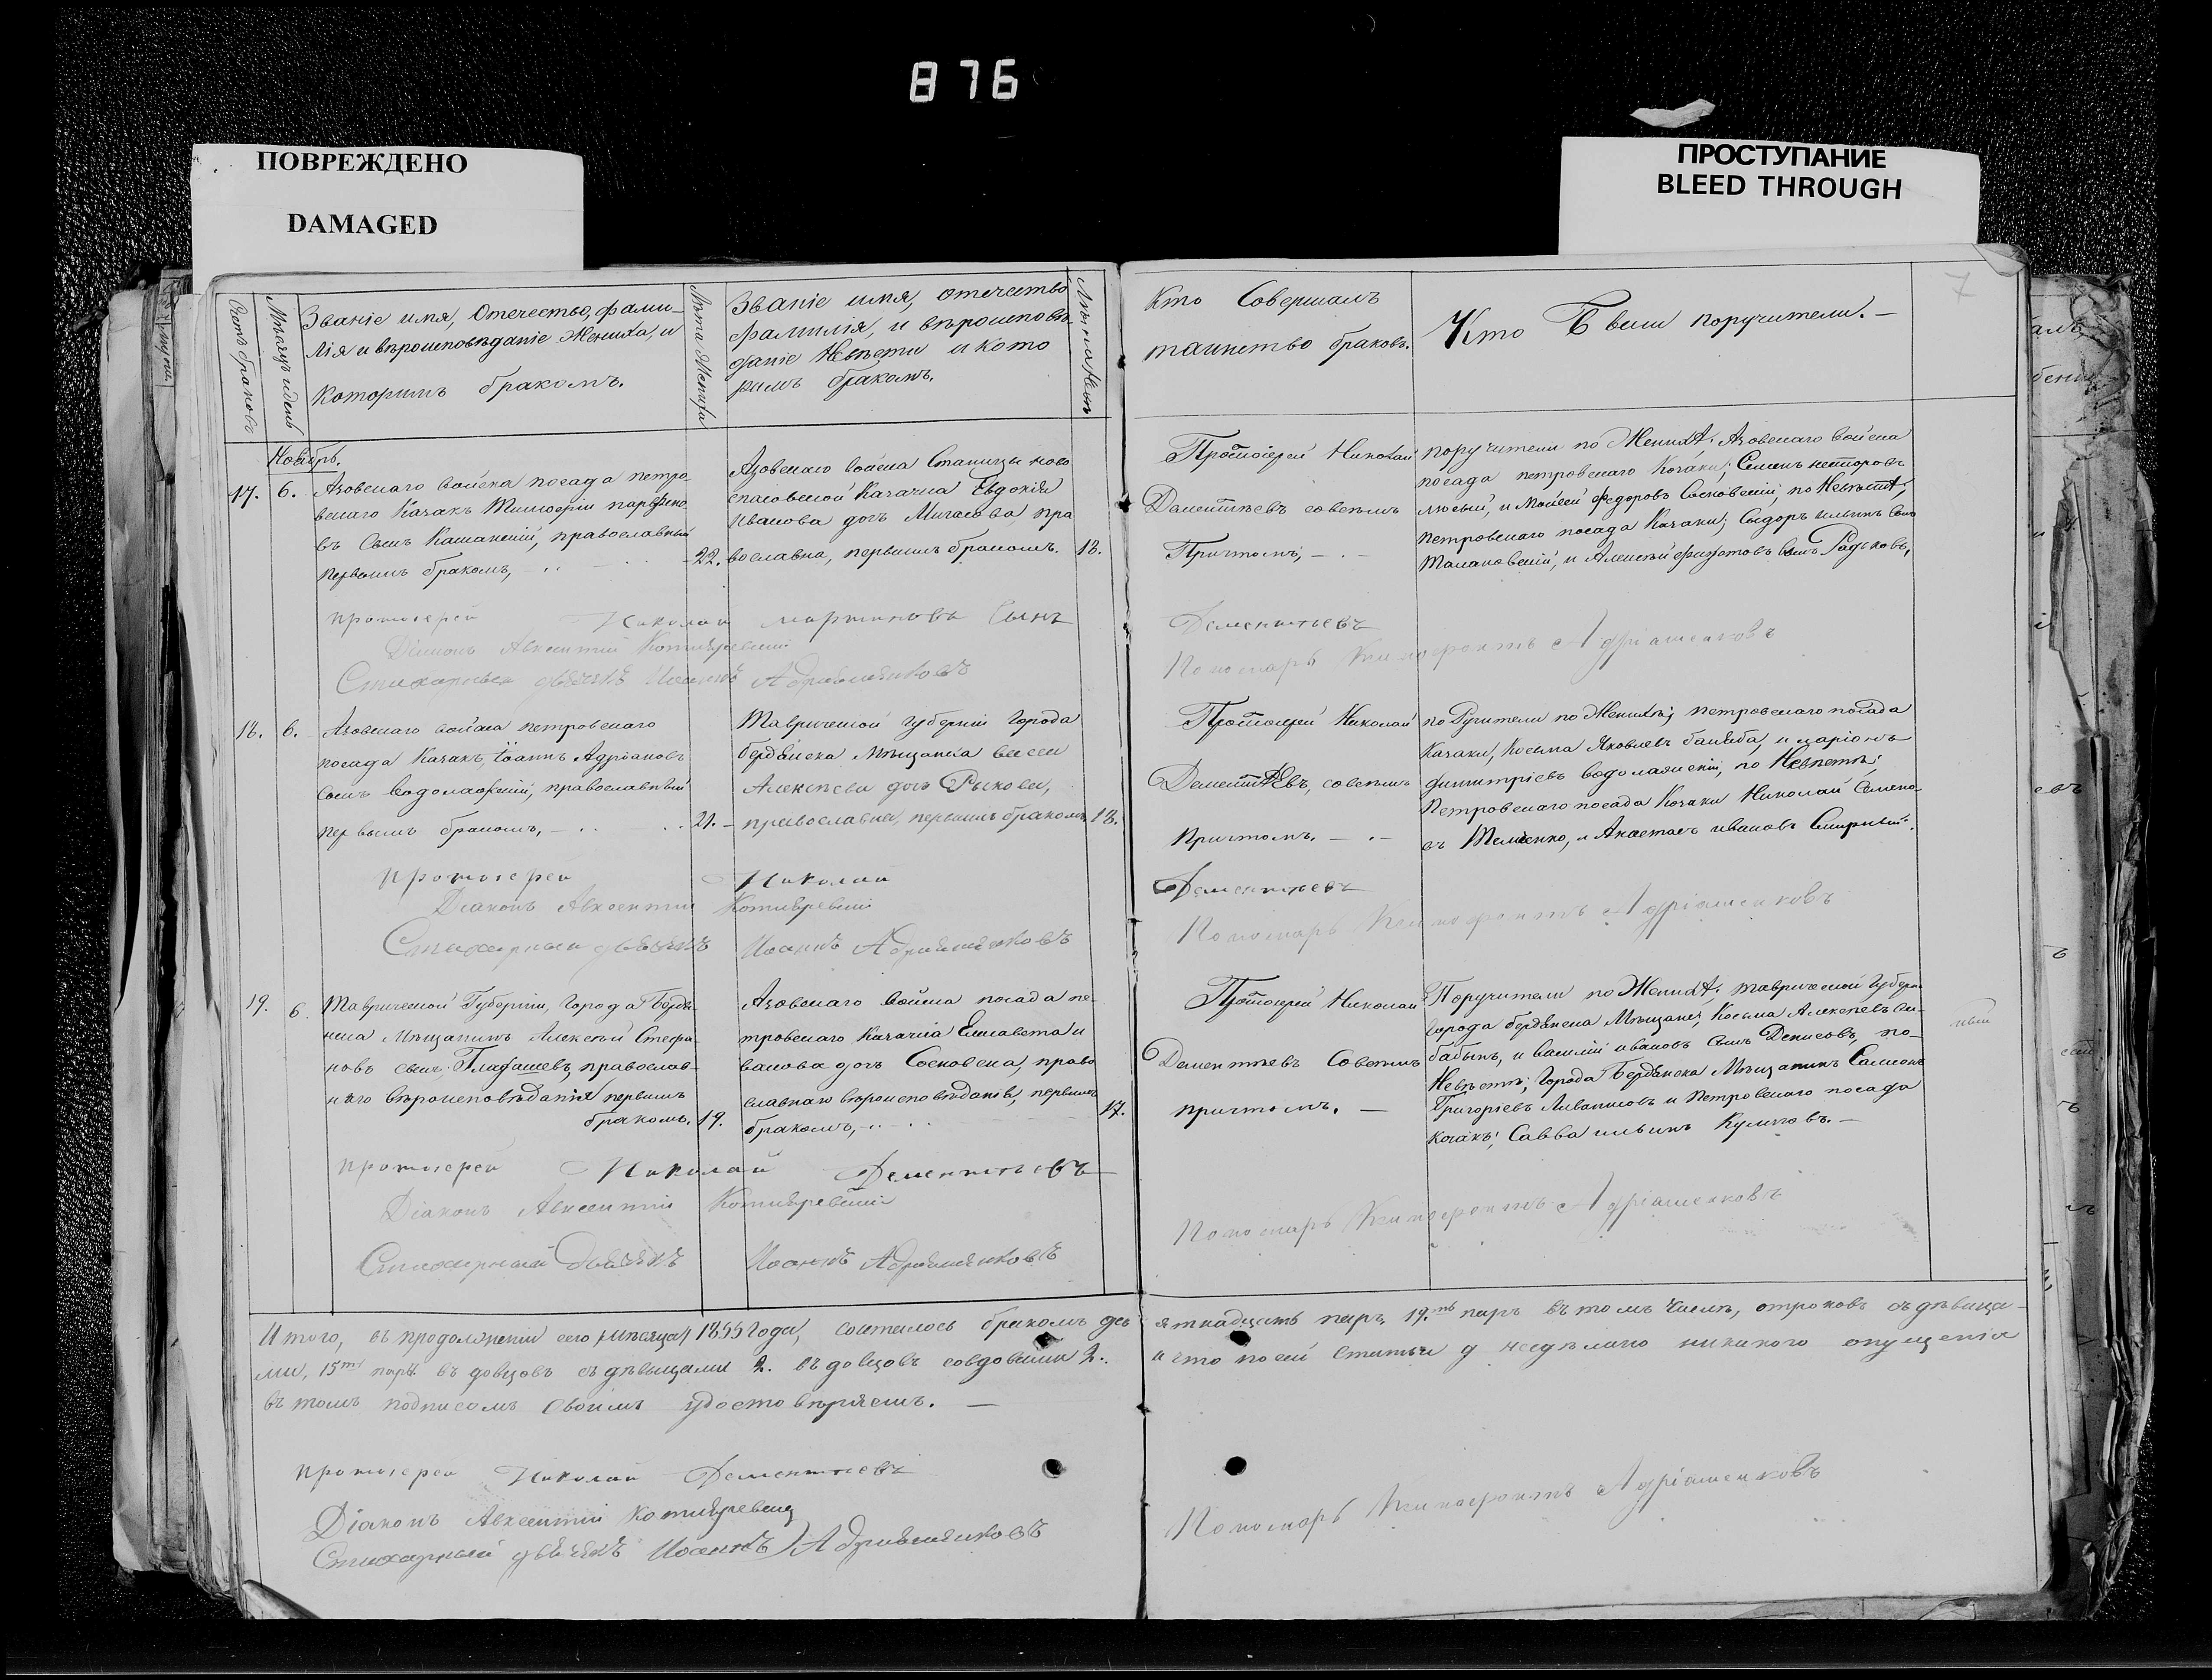 876
ПОВРЕЖДЕНО
DAMAGED
ПРОСТУПАНИЕ
BLEED THROUGH
7
Счетъ браковъ
Мѣсяцъ и день
Званіе имя, Отечество, фами-
лія и вѣроисповѣданіе Жениха, и
которимъ бракомъ.
Лѣта Жениха
Званіе имя, отечество
фамилія, и вѣроисповѣ-
даніе Невѣсти и кото
римъ бракомъ.
Кто Совершалъ
таинство браковъ.
Кто Были поручители. —
Ноябрь.
17. 6.
Азовскаго войска посада петро
вскаго Казакъ Тимофѣй
въ Сынъ православный
первымъ бракомъ, 22.
Азовскаго войска Станицы ново
спасовской Казачка Евдокія
Иванова дочь пра
вославна, первымъ бракомъ. 18.
Протоіерей Николай
Дементьевъ совсѣмъ
Причтомъ,
поручители по Женихѣ; Азовскаго войска
посада петровскаго Казаки; Семенъ
и Мойсей Федоровъ Сосновскій; по Невѣстѣ;
петровскаго посада Казаки; Сидоръ Ильинъ
и Алексѣй Сынъ
протоіерей Николай мартиновъ Сынъ
Дементьевъ
Діаконъ Авксентій Котляревскій
Пономарь Ксинофонтъ Адріашенковъ
Стихарный дьячекъ Иоаннъ Адріяшенковъ
18. 6.
Азовскаго войска петровскаго
посада Казакъ, Іоаннъ Адріановъ
Сынъ Водолажскій, православный
первымъ бракомъ, 21.
Таврической губерніи города
бердянска Мѣщанка
Алексѣева дочь Рыскова,
православна, первымъ бракомъ 18.
Протоіерей Николай
Дементьевъ, совсѣмъ
Причтомъ.
по Ручители по Женихѣ; петровскаго посада
Казаки, Косьма Яковлевъ и ларіонъ
димитріевъ водолажскій, по Невѣстѣ;
Петровскаго посада Казаки Николай Семено-
въ и Анастасъ ивановъ
протоіерей Николай
Дементьевъ
Діаконъ Авксентій Котляревскій
Пономарь Ксинофонтъ Адріашенковъ
Стихарный дьячекъ Иоаннъ Адріяшенковъ
19. 6.
Таврической Губерніи, города Бердя-
нска Мѣщанинъ Алексѣй Стефа-
новъ сынъ православ-
наго вѣроисповѣданія первымъ
бракомъ. 19.
Азовскаго войска посада пе-
тровскаго Казачка Елисавета и
ванова дочь Сосновска, право
славнаго вѣроисповѣданія, первымъ
бракомъ, 17.
Протоіерей Николай
Дементьевъ Совсѣмъ
причтомъ. —
Поручители по Женихѣ; таврической губерн
города бердянска Мѣщане, Косьма Алексѣевъ
и василій ивановъ сынъ Денисовъ, по-
Невѣстѣ; города Бердянска Мѣщанинъ
Григоріевъ и Петровскаго посада
казакъ; Савва ильинъ Куликовъ. —
протоіерей Николай Дементьевъ
Діаконъ Авксентій Котляревскій
Пономарь Ксинофонтъ Адріашенковъ
Стихарный Дьячекъ Иоаннъ Адріяшенковъ
Итого, въ продолженіи сего мѣсяца 1855 Года, состоялось бракомъ дев ятнадцать паръ, 19.ть паръ въ томъ числѣ, отроковъ съ дѣвица-
ми, 15ть паръ въ довцовъ съ дѣвицами 2. въ довцовъ совдовами 2. и что по сей Статьи не сдѣлано никакого опущенія
въ томъ подписомъ своимъ удостовѣряемъ. —
протоіерей Николай Дементьевъ
Діаконъ Авксентій Котляревскій
Пономарь Ксинофонтъ Адріашенковъ
Стихарный дьячекъ Иоаннъ Адріяшенковъ